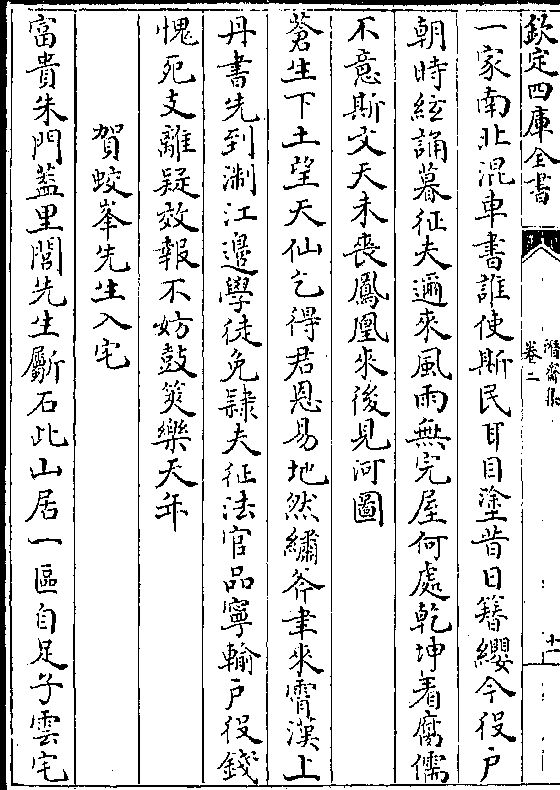 欽定四庫全書
潛齋集
卷二
十一
一家南北混車書誰使斯民耳目塗昔日簪纓今役户
朝時絃誦暮征夫邇來風雨無完屋何處乾坤着腐儒
不意斯文天未喪鳳凰來後見河圖
蒼生下土望天仙乞得君恩易地然繡斧聿來霄漢上
丹書先到淛江邊學徒免隸夫征法官品寧輸户役錢
愧死支離疑效報不妨鼓筴樂天年
賀蛟峯先生入宅
富貴朱門蓋里閭先生斸石此山居一區自足子雲宅